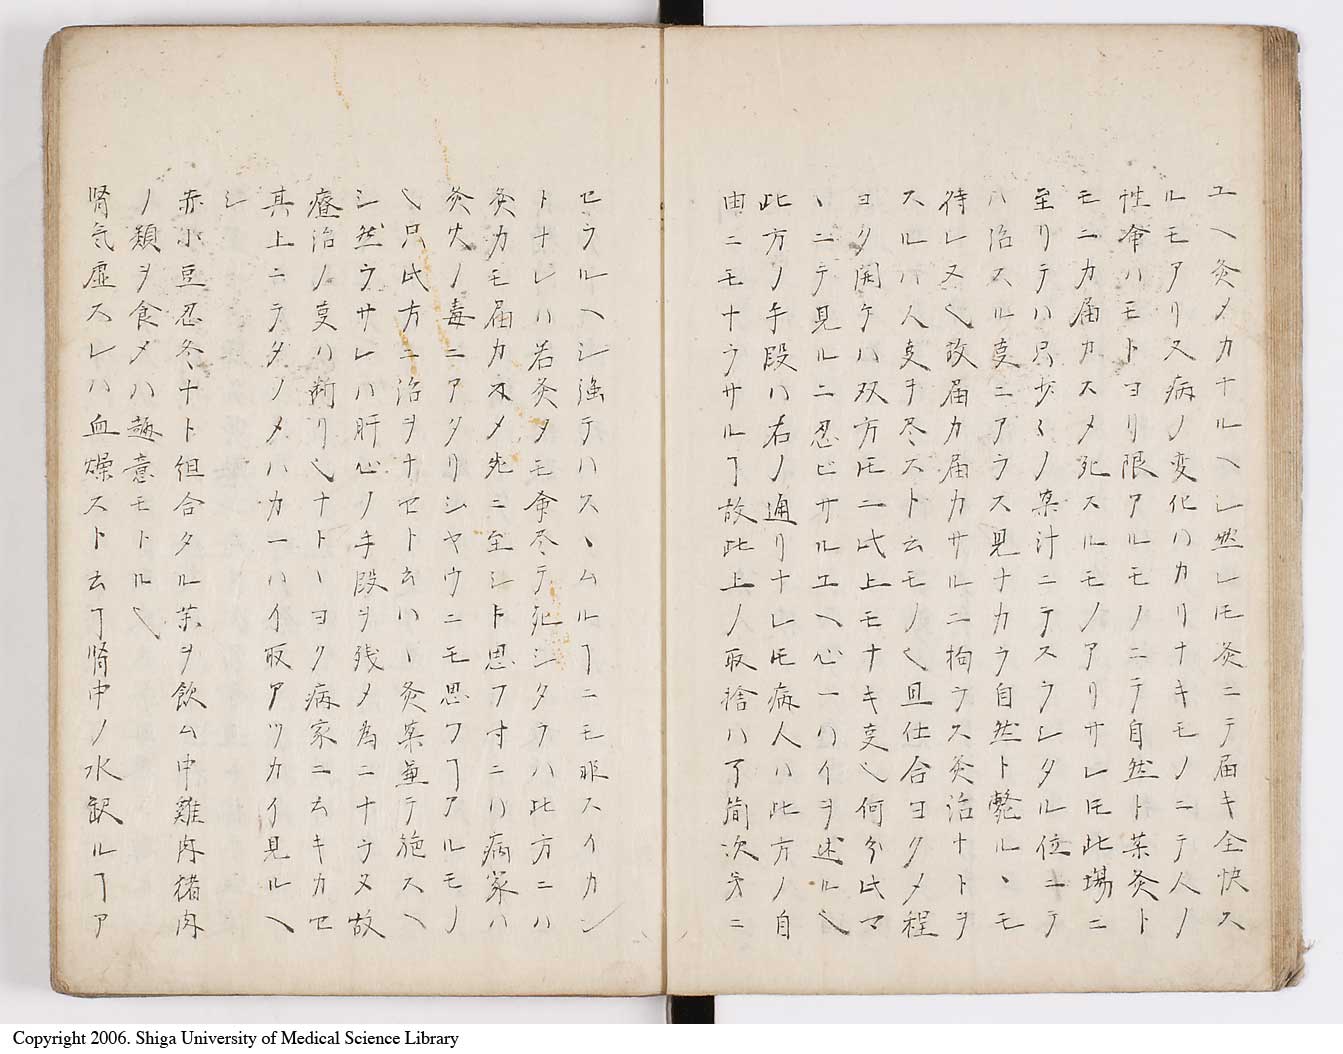 ユヘ灸メカナルヘシ然レ𪜈灸ニテ届キ全快ス
ルモアリ又病ノ変化ハカリナキモノニテ人ノ
性命ハモトヨリ限アルモノニテ自然ト薬灸ト
モニカ届カスメ死スルモノアリサレ𪜈此場ニ
至リテハ只少〻ノ薬汁ニテスウシタル位ニテ
ハ治スル𠮷ニアラス見ナカラ自然ト斃ルヽモ
待レヌ〵故届カ届カサルニ拘ラス灸治ナトヲ
スルハ人事ヲ尽スト云モノ〵且仕合ヨクメ程
ヨク開ケハ双方𪜈ニ此上モナキ事〵何分此マ
ヽニテ見ルニ忍ビサルユヘ心一ハイヲ述ル〵
此方ノ手段ハ右ノ通リナレ𪜈病人ハ此方ノ自
由ニモナラサルヿ故此上ノ取捨ハ了簡次第ニ
セラルヘシ強テハスヽムルヿニモ非スイカン
トナレハ若灸タモ命尽テ死シタラハ此方ニハ
灸カモ届カスメ死ニ至シト思フ寸ニハ病家ハ
灸火ノ毒ニアタリシヤウニモ思フヿアルモノ
〵只此方ニ治ヲナセト云ハヽ灸薬兼テ施スヘ
シ然ラサレハ肝心ノ手段ヲ残メ為ニナラヌ故
療治ノ事ハ断リ〵ナトヽヨク病家ニ云キカセ
其上ニテタノメハカ一ハイ取アツカイ見ルヘ
シ
赤小豆忍冬ナト組合タル薬ヲ飲ム中雞肉猪肉
ノ類ヲ食メハ趣意モトル〵
腎気虚スレハ血燥スト云ヿ腎中ノ水尠ルヿア